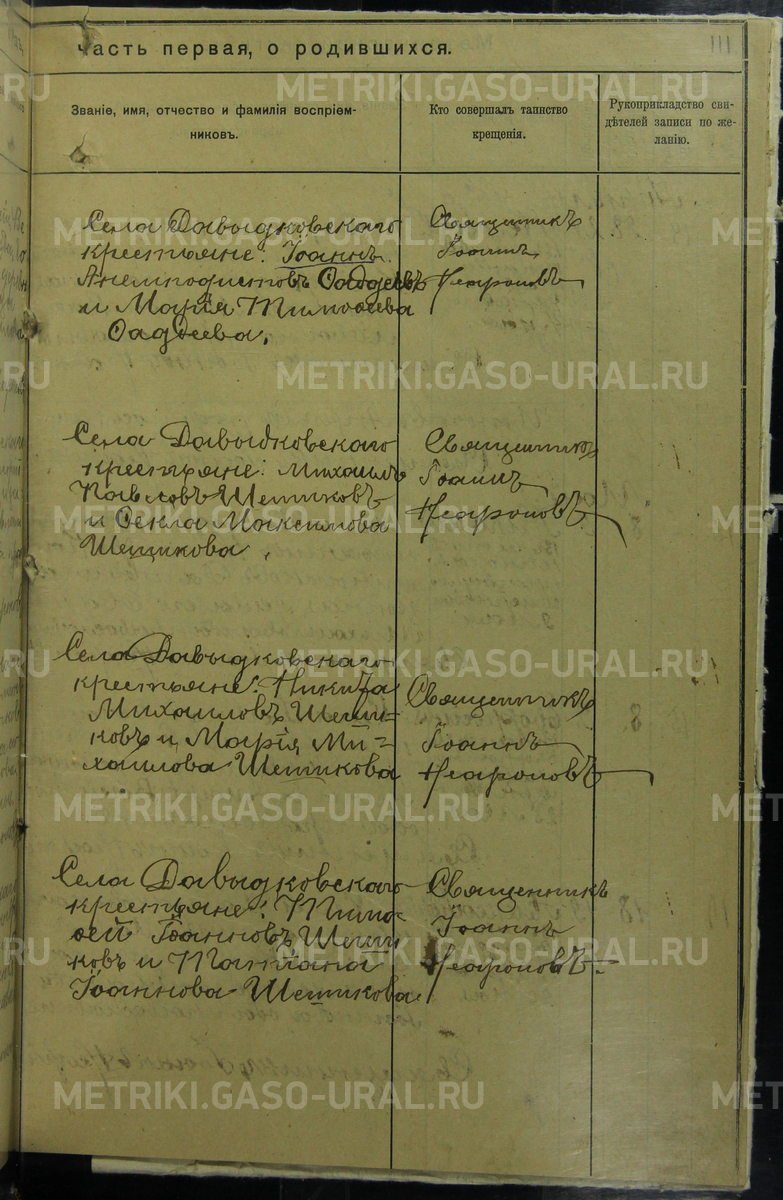 часть первая, о родившихся.
111
Званіе, имя, отчество и фамилія воспріем-
никовъ.
Кто совершалъ таинство
крещенія.
Рукоприкладство сви-
дѣтелей записи по же-
ланію.
Села Давыдковскаго
крестьяне: Іоаннъ
Анемподистовъ Фаддеевъ
и Марія Тимоѳеева
Фаддеева.
Священникъ
Іоаннъ
Села Давыдковскаго
крестьяне: Михаилъ
Павловъ Шешиковъ
и Ѳекла Максимова
Шешикова.
Священникъ
Іоаннъ
Села Давыдковскаго
крестьяне: Никита
Михаиловъ Шеши-
ковъ и Марія Ми-
хаилова Шешикова
Священникъ
Іоаннъ
Села Давыдковскаго
крестьяне: Тимо-
ѳей Іоанновъ Шеши
ковъ и Татіана
Іоаннова Шешикова.
Священникъ
Іоаннъ
METRIKI.GASO-URAL.RU